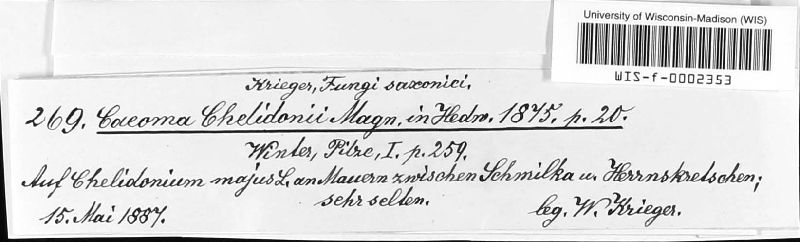 University of Wisconsin-Madison (WIS)
WIS-f-0002353
Krieger, Fungi saxonici.
269. Caeoma Chelidonii Magn. in Hedw. 1875. p. 20.
Winter, Pilze, I. p. 259.
Auf Chelidonium majus L. an Mauern zwischen Schmilka u. Herrnskretschen;
sehr selten.
15. Mai 1887. leg. W. Krieger.